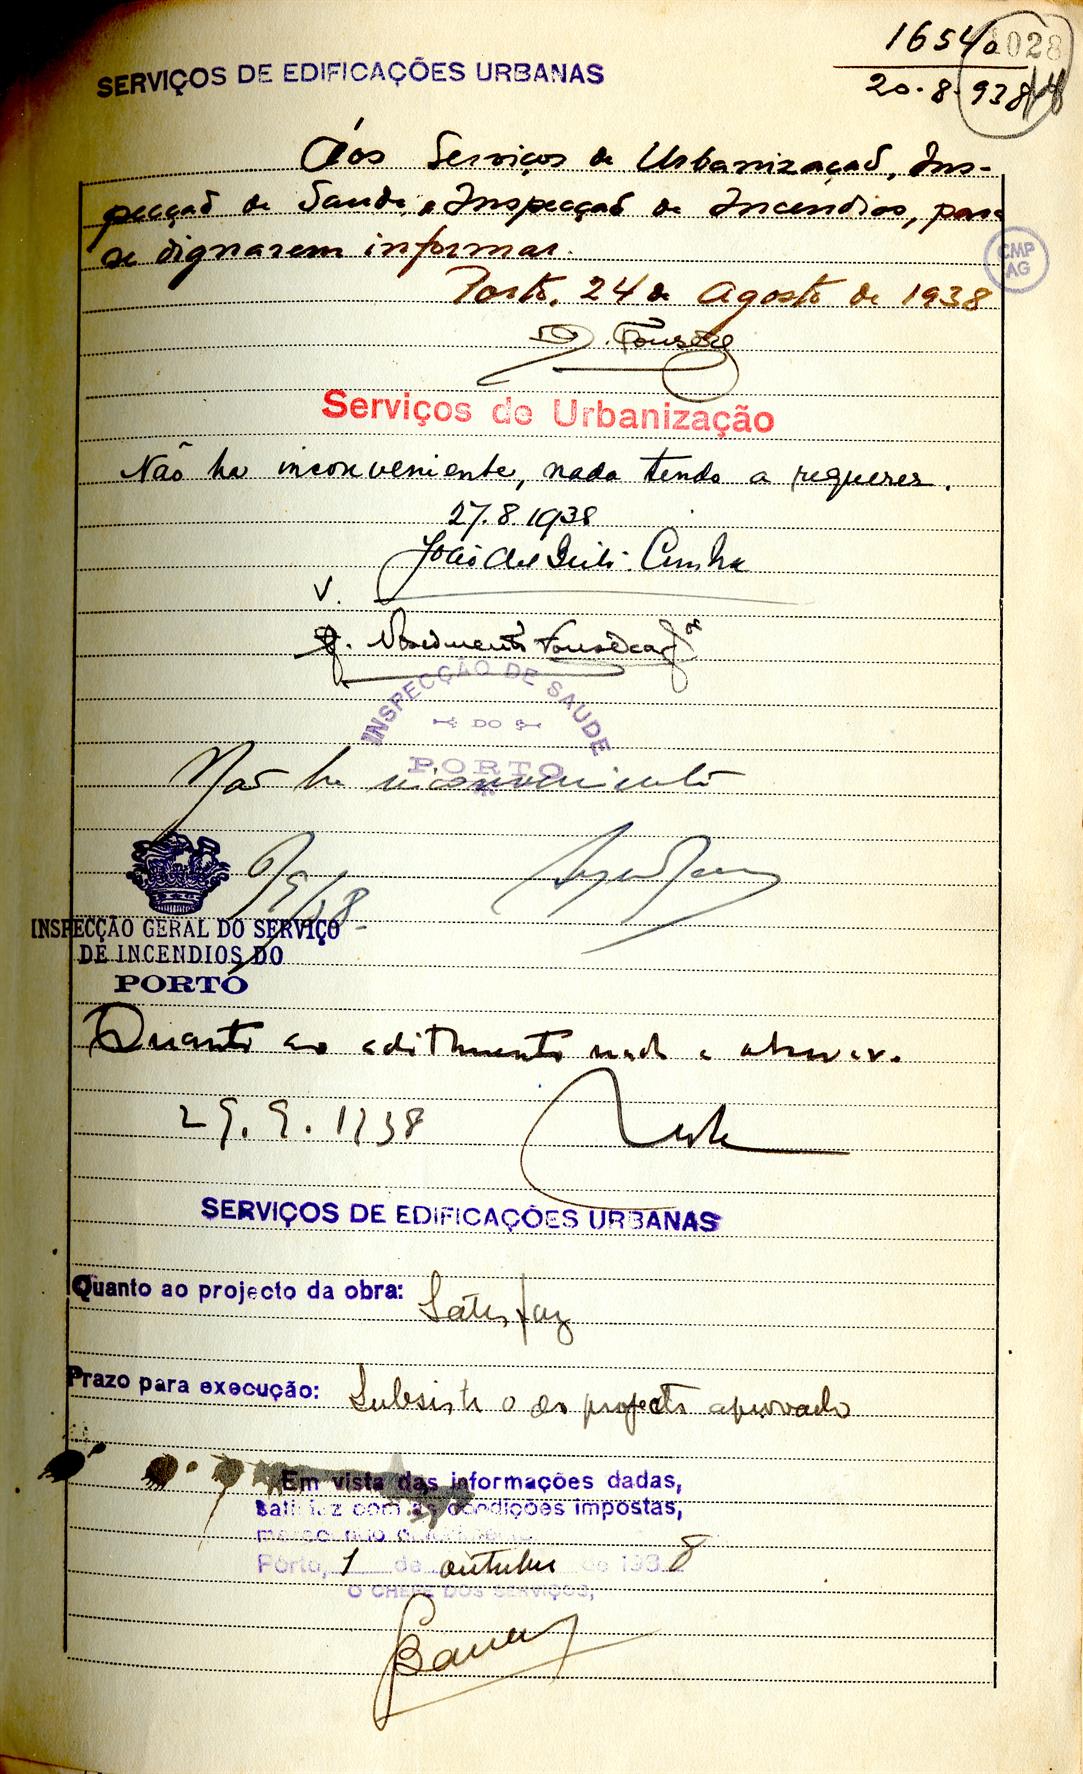 1654
028
20-8-938
SERVIÇOS DE EDIFICAÇÕES URBANAS
Aos Serviços de Urbanização, Ins-
pecção de Saude, e Inspecção de Incendios, para
se dignarem informar.
CMP
AG
Porto, 24 de Agosto de 1938
Fonseca
Serviços de Urbanização
Não ha inconveniente, nada tendo a requerer.
27.8.1938
João Cunha
V.
Nascimento Fonseca
INSPECÇÃO DE SAUDE
DO
PORTO
Não ha inconveniente
INSPECÇÃO GERAL DO SERVIÇO
DE INCENDIOS DO
PORTO
Quanto ao aditamento nada a observar.
29.9.1938
SERVIÇOS DE EDIFICAÇÕES URBANAS
Quanto ao projecto da obra: Satisfaz
Prazo para execução: Subsiste o do projecto aprovado
Em vista das informações dadas,
satisfaz com as condições impostas,
Pôrto, 1 de outubro de 1938
O CHEFE DOS SERVIÇOS,